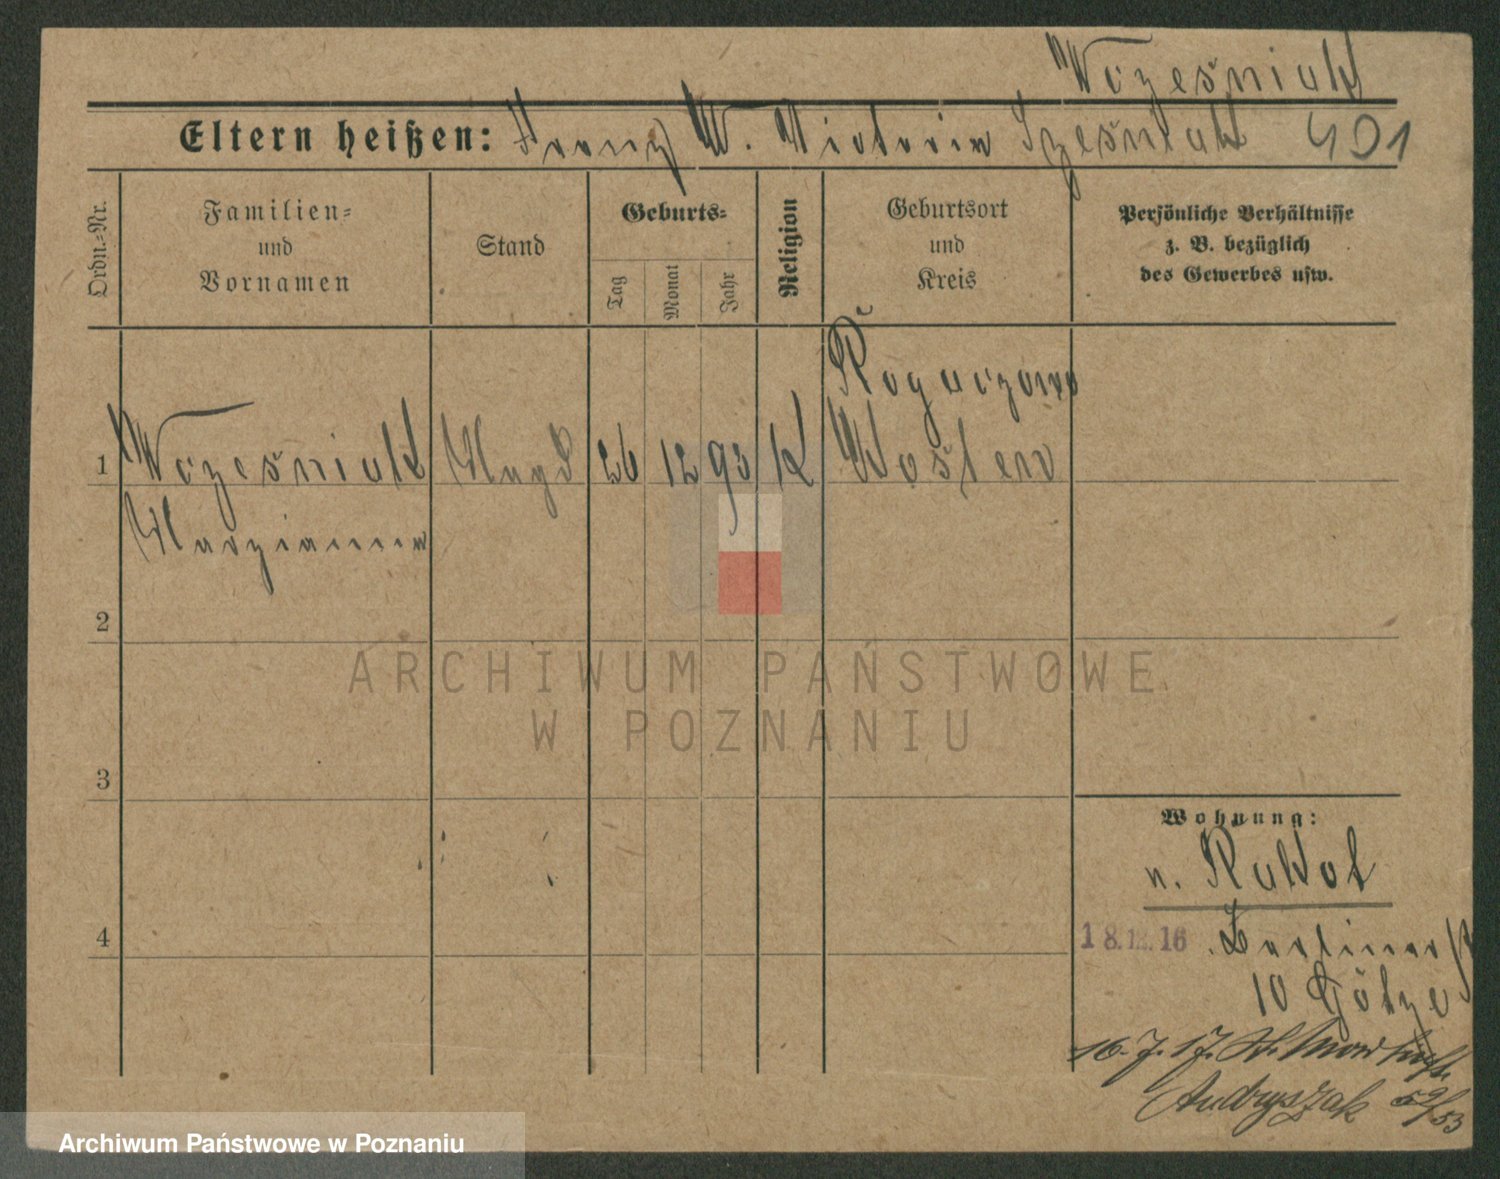 Wczesniak
Eltern heißen: Franz W. Victoria Szesniak 401
Ordn.-Nr.
Familien-
und
Vornamen
Stand
Geburts-
Tag
Monat
Jahr
Religion
Geburtsort
und
Kreis
Persönliche Verhältnisse
z. B. bezüglich
des Gewerbes usw.
Rogaczewo
1 Wczesniak Magd 26 12 93 K Kosten
Marzianna
2
3
4
Wohnung:
n. Rakot
18.12.16 Berliner str
10 Götze
16.7.17. St. Martinstr.
Andryszak 52/53
ARCHIWUM PAŃSTWOWE
W POZNANIU
Archiwum Państwowe w Poznaniu